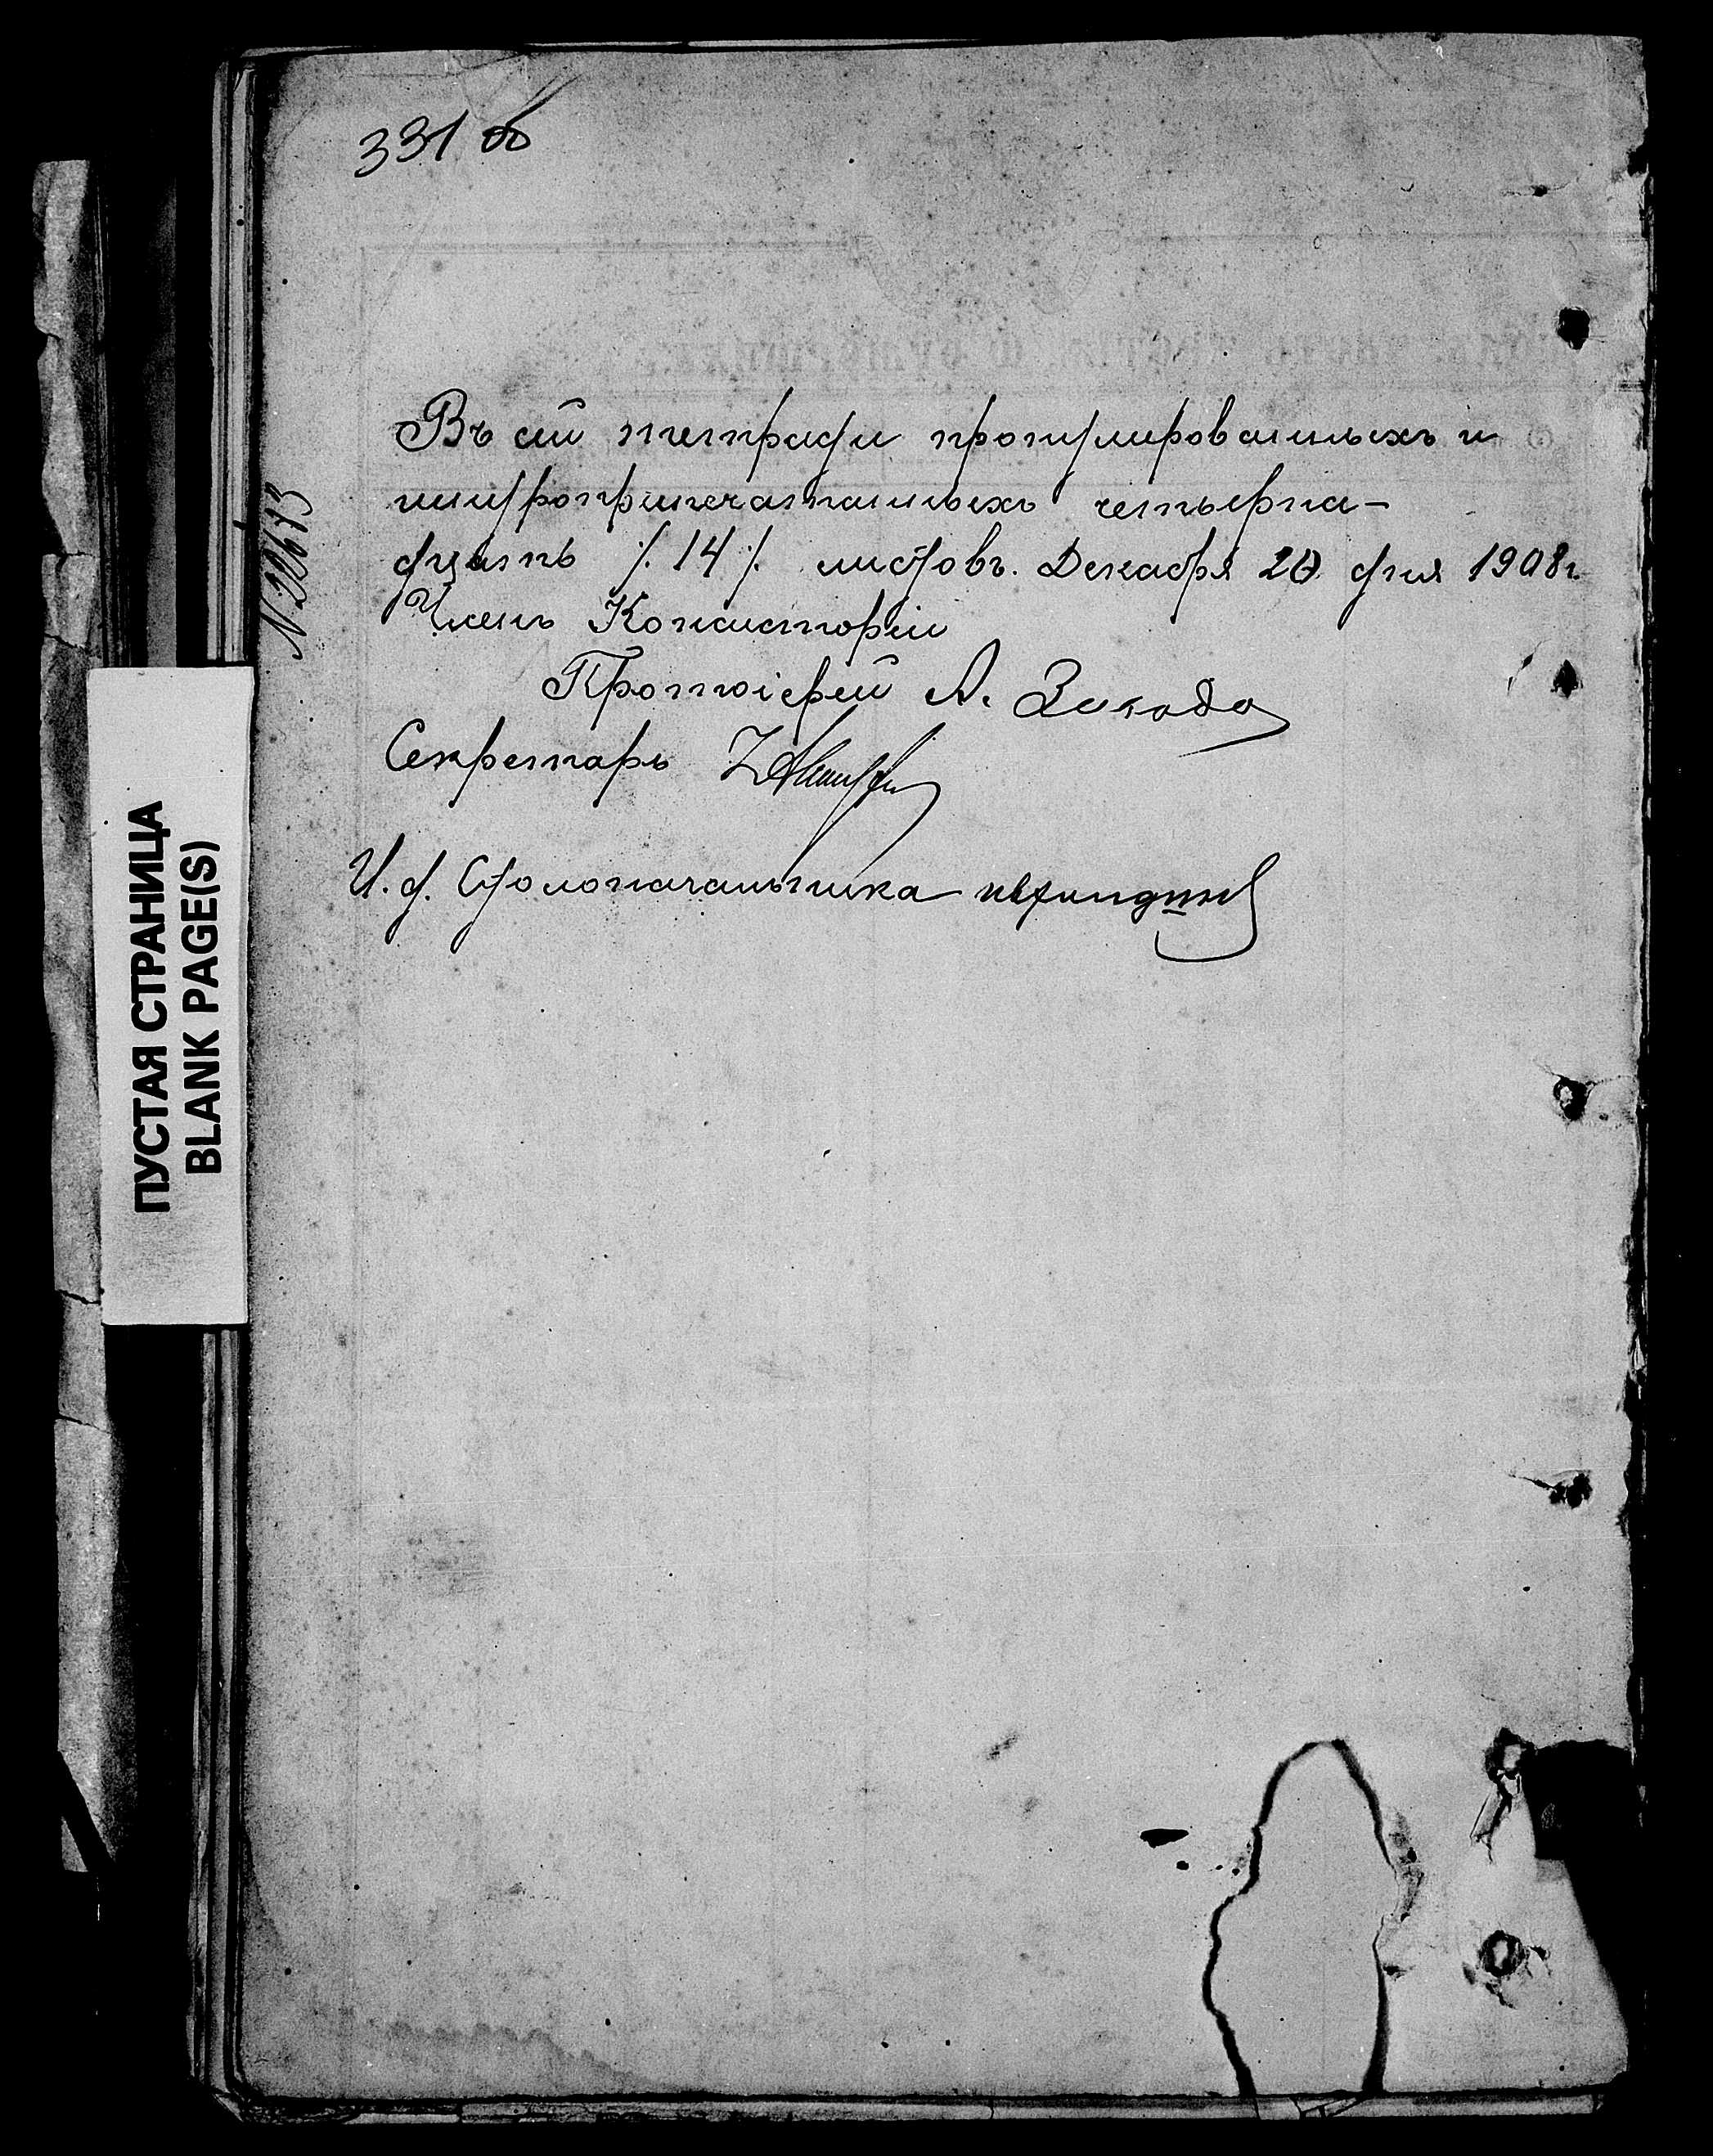 331 об
Въ сей тетради пронумерованныхъ и
шнуроприпечатанныхъ четырна-
дцать /. 14 /. листовъ. Декабря 20 дня 1908 г.
Членъ Консисторіи
Протоіерей А.
Секретарь
И. д. Столоначальника
N 22673
ПУСТАЯ СТРАНИЦА
BLANK PAGE(S)